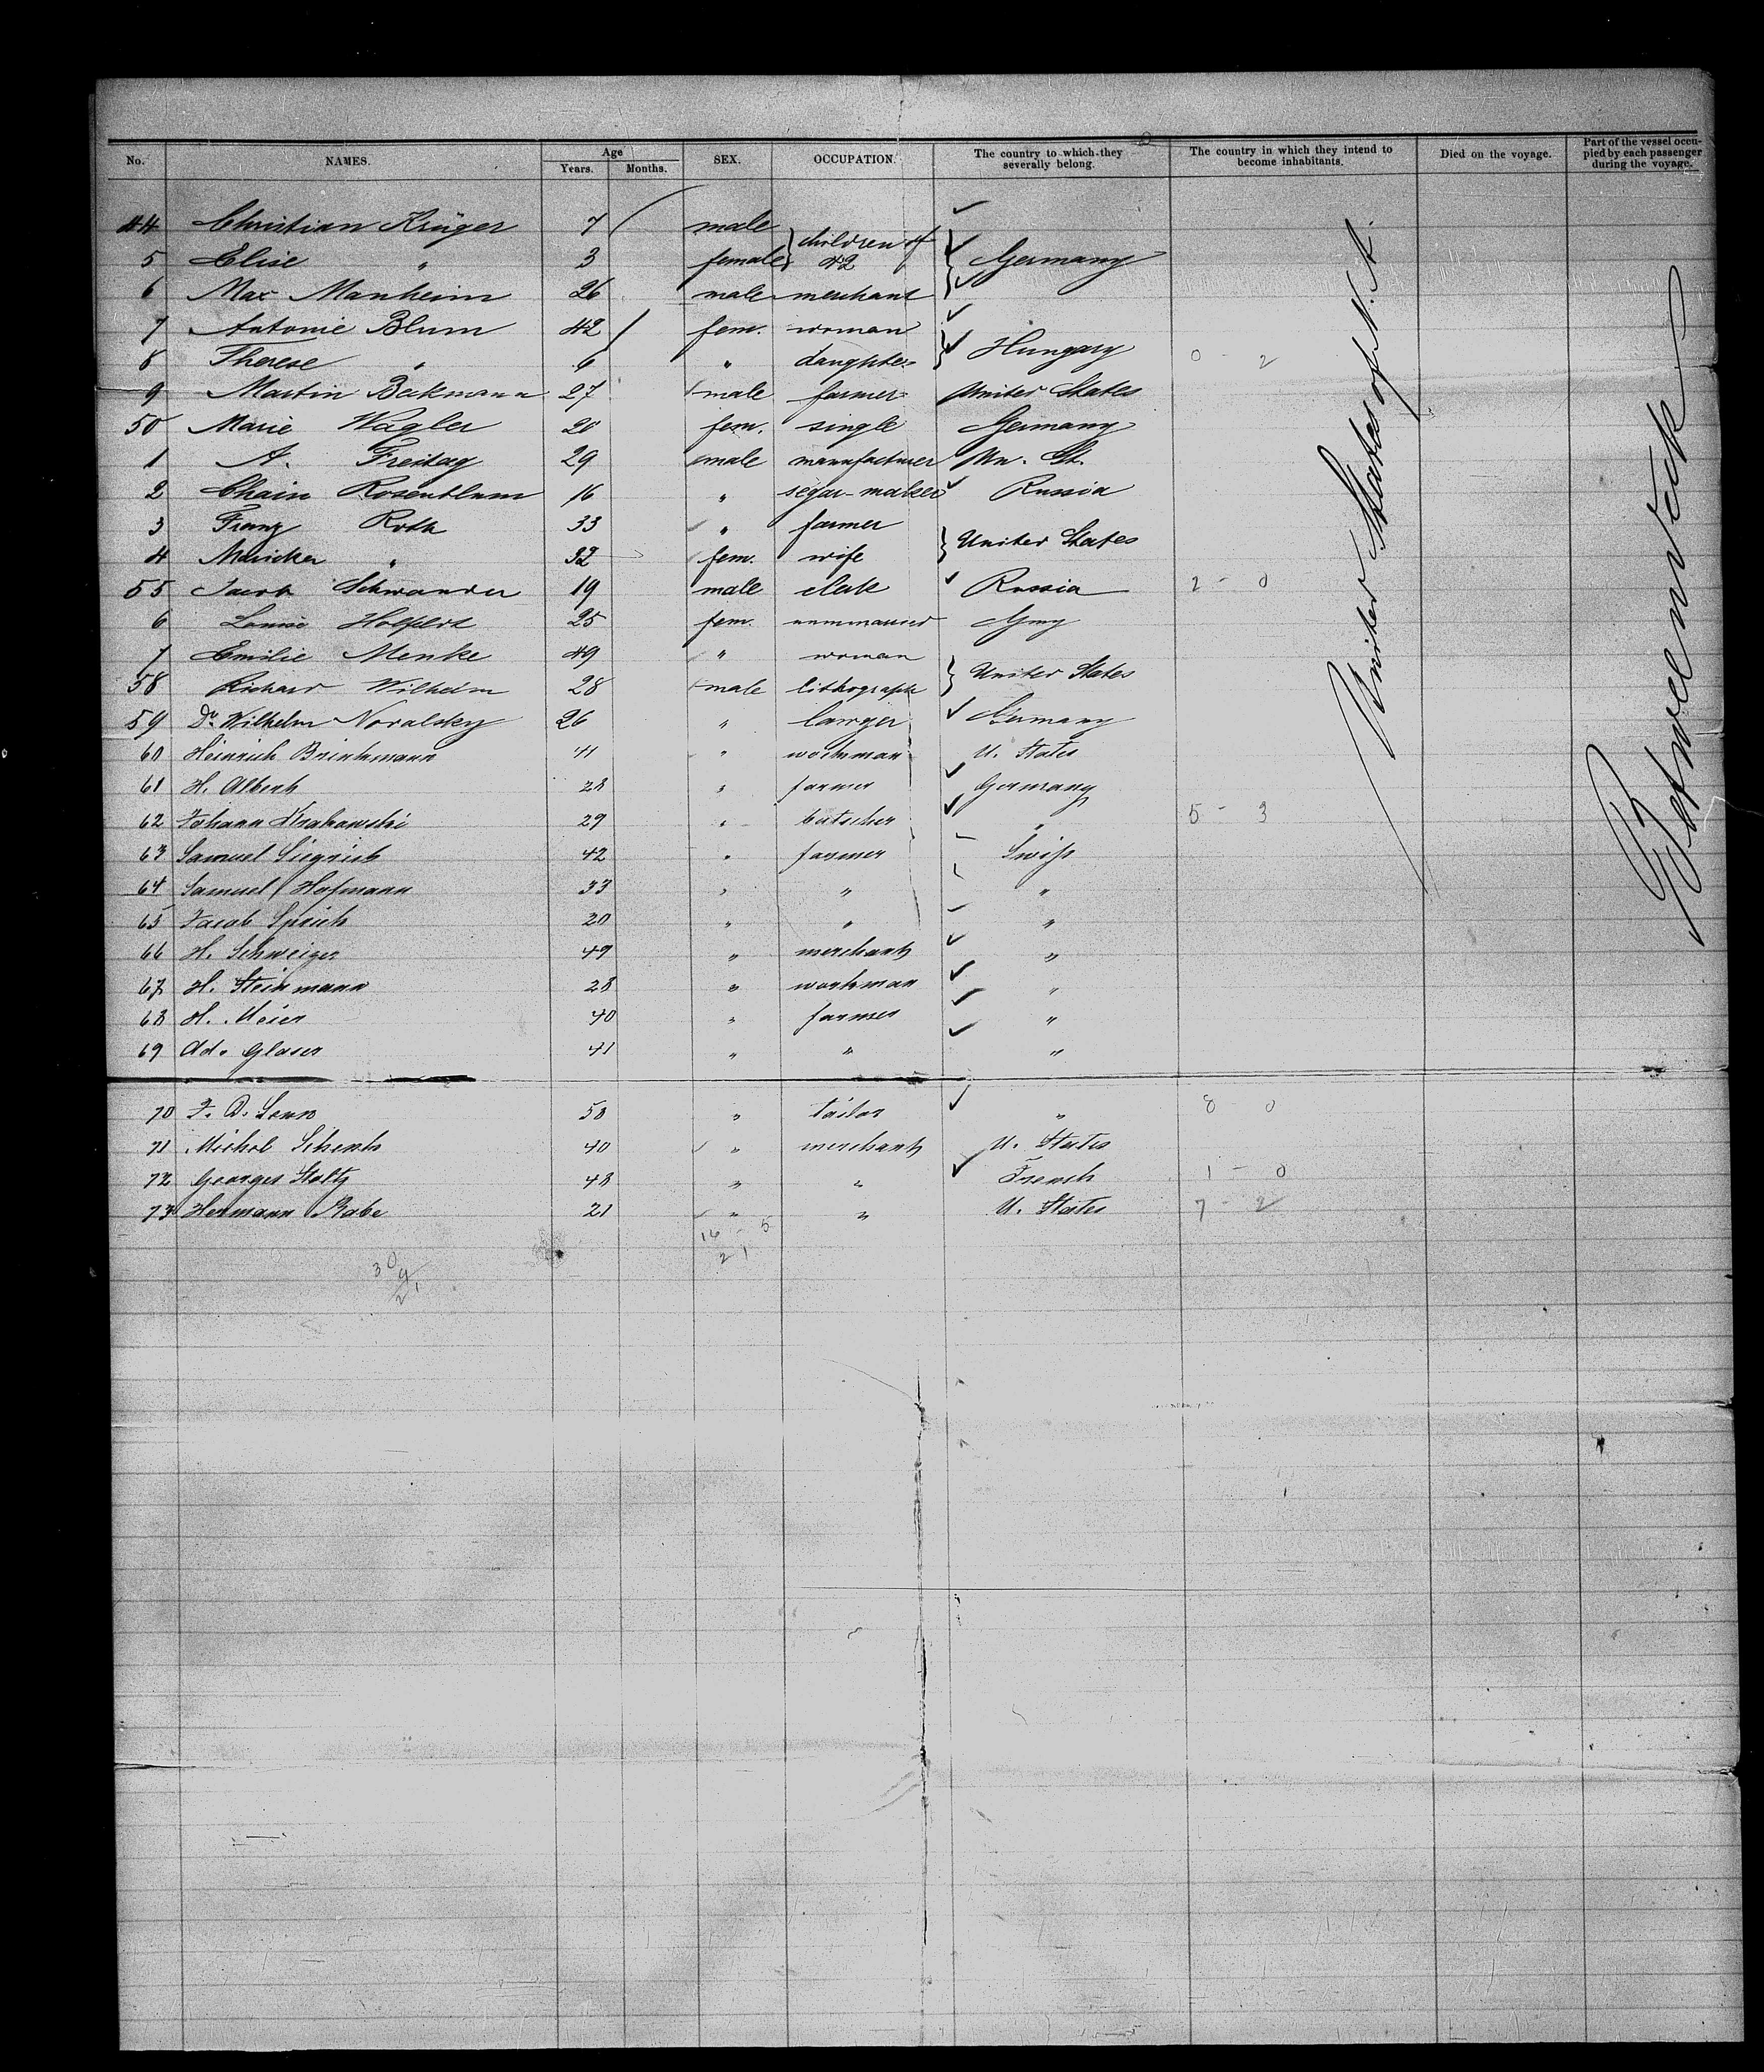 No. NAMES. Age Years. Months. SEX. OCCUPATION. The country to which they severally belong. The country in which they intend to become inhabitants. Died on the voyage. Part of the vessel occupied by each passenger during the voyage.
44 Christian Krüger 7 male } children of 42
5 Elise " 3 female } Germany
6 Max Manheim 26 male merchant
7 Antonie Blum 42 fem. woman
8 Therese " 6 " daughter } Hungary 0 - 2
9 Martin Beckmann 27 male farmer United States
50 Marie Wagler 20 fem. single Germany
1 A. Freitag 29 male manufacturer Un. St.
2 Chain Rosenblum 16 " segar-maker Russia
3 Franz Roth 33 " farmer
4 Maricker " 32 fem. wife } United States
55 Jacob Schwander 19 male clerk Russia 2 - 0
6 Louise Holpert 25 fem. unmarried Gmy
7 Emilie Menke 49 " woman
58 Richard Wilhelm 28 male lithograph } United States
59 Dr. Wilhelm Noralsky 26 " lawyer Germany
60 Heinrich Brinkmann 41 " workman U. States
61 H. Albert 28 " farmer Germany
62 Johann Krakowski 29 " butscher " 5 - 3
63 Samuel Siegrich 42 " farmer Swiss
64 Samuel Hofmann 33 " " "
65 Jacob 20 " " "
66 H. Schweiger 49 " merchant "
67 H. Steinmann 28 " workman "
68 H. Meier 40 " farmer "
69 Ad. Glaser 41 " " "
70 F. D. 50 " tailor " 8 - 0
71 Michel Schenk 40 " merchant U. States
72 Georges Stoltz 48 " " French 1 - 0
73 Hermann Rabe 21 " " U. States 7 - 2
16 - 5
21
30
9
21
United States of N. A.
Between deck